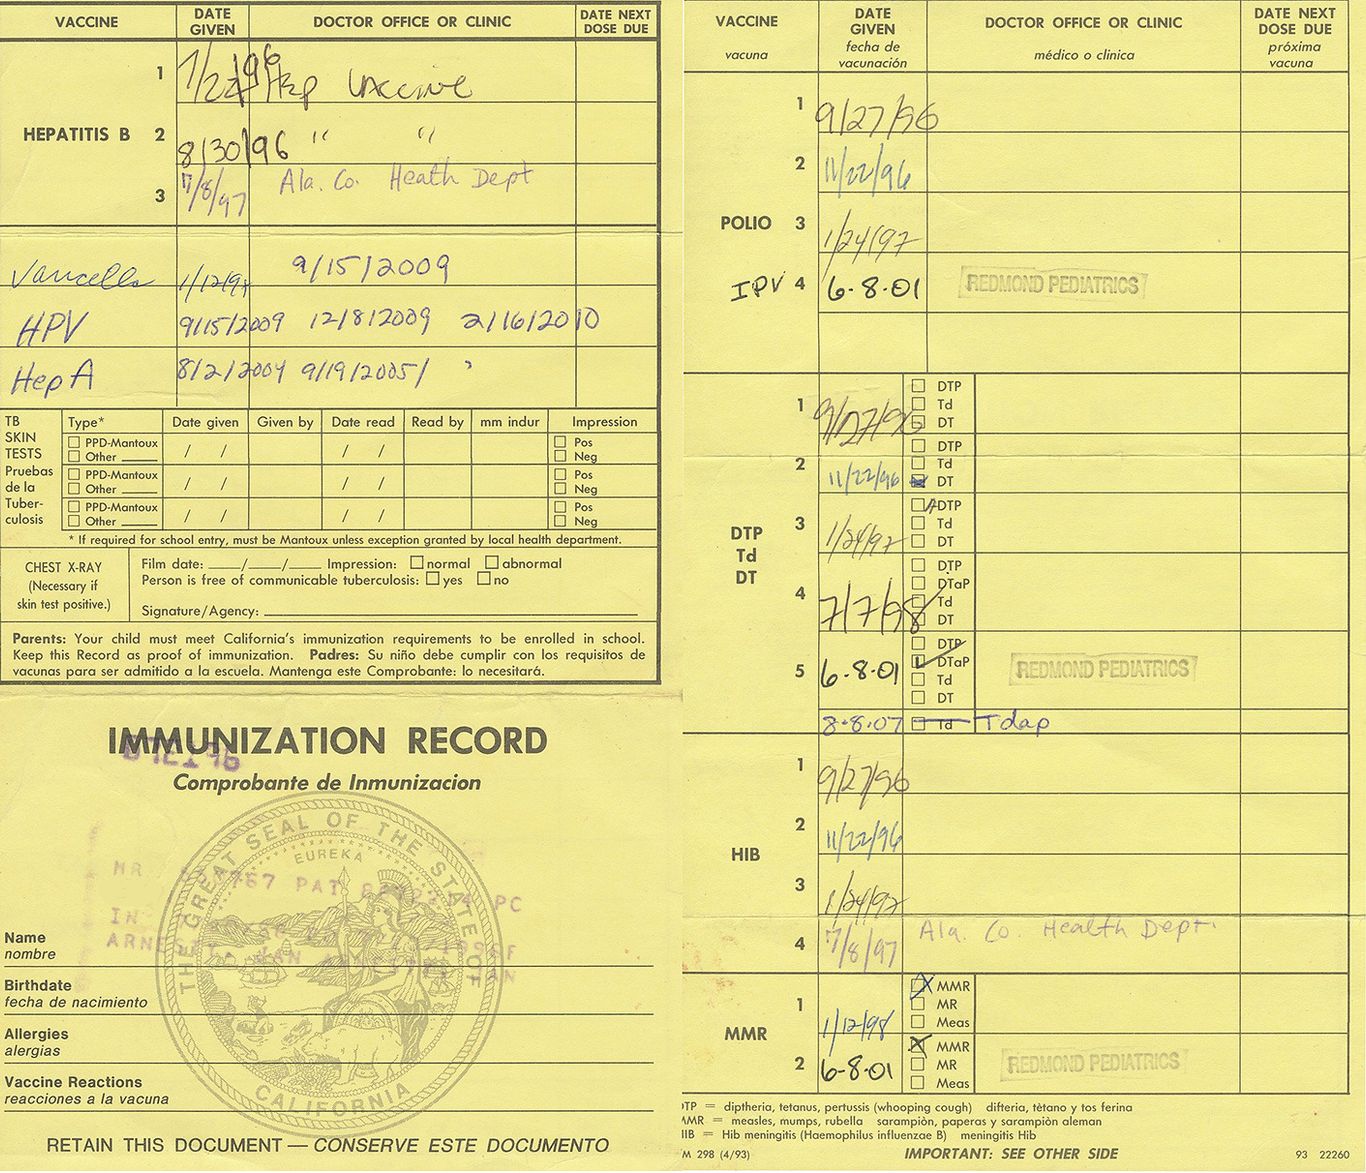 VACCINE DATE GIVEN DOCTOR OFFICE OR CLINIC DATE NEXT DOSE DUE
HEPATITIS B
1 7/22/96 Hep Vaccine
2 8/30/96 " "
3 7/8/97 Ala. Co. Heath Dept
Varicella 1/12/98 9/15/2009
HPV 9/15/2009 12/8/2009 2/16/2010
Hep A 8/2/2004 9/19/2005/
TB SKIN TESTS Pruebas de la Tuber-culosis
Type* Date given Given by Date read Read by mm indur Impression
PPD-Mantoux / / / / Pos
Other Neg
PPD-Mantoux / / / / Pos
Other Neg
PPD-Mantoux / / / / Pos
Other Neg
* If required for school entry, must be Mantoux unless exception granted by local health department.
CHEST X-RAY
(Necessary if
skin test positive.)
Film date: / / Impression: normal abnormal
Person is free of communicable tuberculosis: yes no
Signature/Agency:
Parents: Your child must meet California's immunization requirements to be enrolled in school.
Keep this Record as proof of immunization. Padres: Su niño debe cumplir con los requisitos de
vacunas para ser admitido a la escuela. Mantenga este Comprobante: lo necesitará.
IMMUNIZATION RECORD
Comprobante de Inmunizacion
THE GREAT SEAL OF THE STATE OF CALIFORNIA
EUREKA
MR PAT PC
IN
Name
nombre
Birthdate
fecha de nacimiento
Allergies
alergias
Vaccine Reactions
reacciones a la vacuna
RETAIN THIS DOCUMENT — CONSERVE ESTE DOCUMENTO
VACCINE DATE GIVEN DOCTOR OFFICE OR CLINIC DATE NEXT DOSE DUE
vacuna fecha de vacunación médico o clinica próxima vacuna
POLIO
1 9/27/96
2 11/22/96
3 1/24/97
IPV 4 6-8-01 REDMOND PEDIATRICS
DTP
Td
DT
1 9/27/96 DTP Td DT
2 11/22/96 DTP Td DT
3 1/24/97 DTP Td DT
4 7/7/98 DTP DTaP Td DT
5 6-8-01 DTP DTaP Td DT REDMOND PEDIATRICS
8-8-07 Td Tdap
HIB
1 9/27/96
2 11/22/96
3 1/24/97
4 7/8/97 Ala. Co. Health Dept.
MMR
1 1/12/98 MMR MR Meas
2 6-8-01 MMR MR Meas REDMOND PEDIATRICS
DTP = diptheria, tetanus, pertussis (whooping cough) difteria, tètano y tos ferina
MMR = measles, mumps, rubella sarampiòn, paperas y sarampiòn aleman
HIB = Hib meningitis (Haemophilus influenzae B) meningitis Hib
M 298 (4/93) IMPORTANT: SEE OTHER SIDE 93 22260